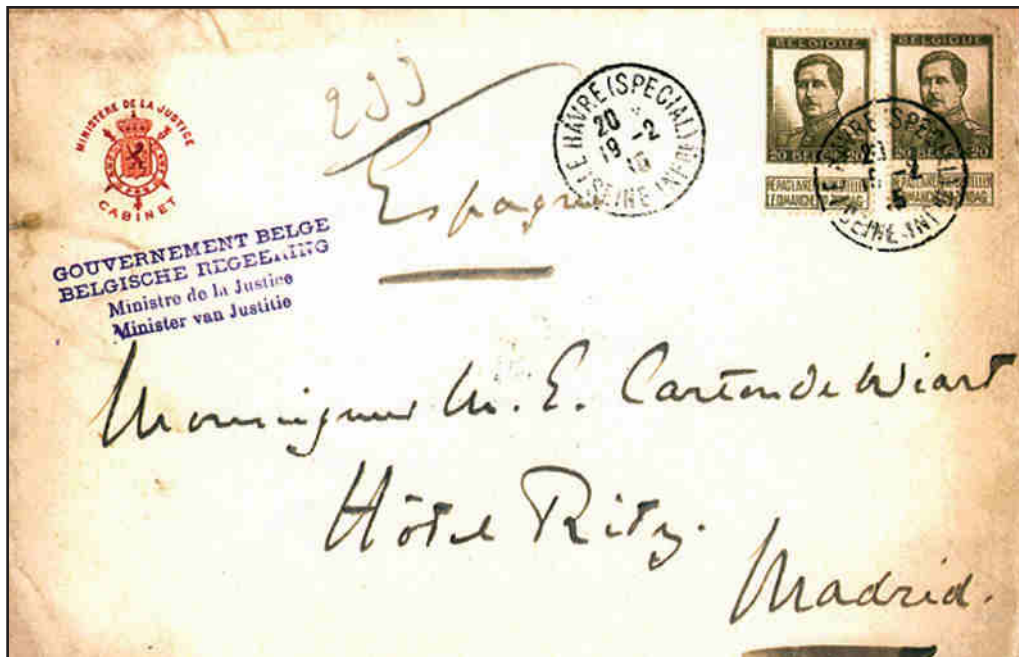 MINISTÈRE DE LA JUSTICE
CABINET
GOUVERNEMENT BELGE
BELGISCHE REGEERING
Ministre de la Justice
Minister van Justitie
233
Espagne
LE HAVRE (SPECIAL)
20 -2
19
(SEINE INFRE)
BELGIQUE
20 BEL 20
BELGIQUE
20 BEL 20
NE PAS LIVRER
LE DIMANCHE
HAVRE (SPECIAL)
-2
15
SEINE-IN
Monseigneur M. E. Carton de Wiart
Hôtel Ritz.
Madrid.